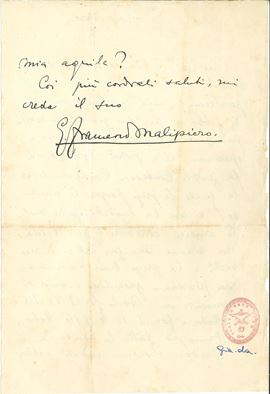 mia aquila?
Coi più cordiali saluti, mi
creda il suo
G. Francesco Malipiero.